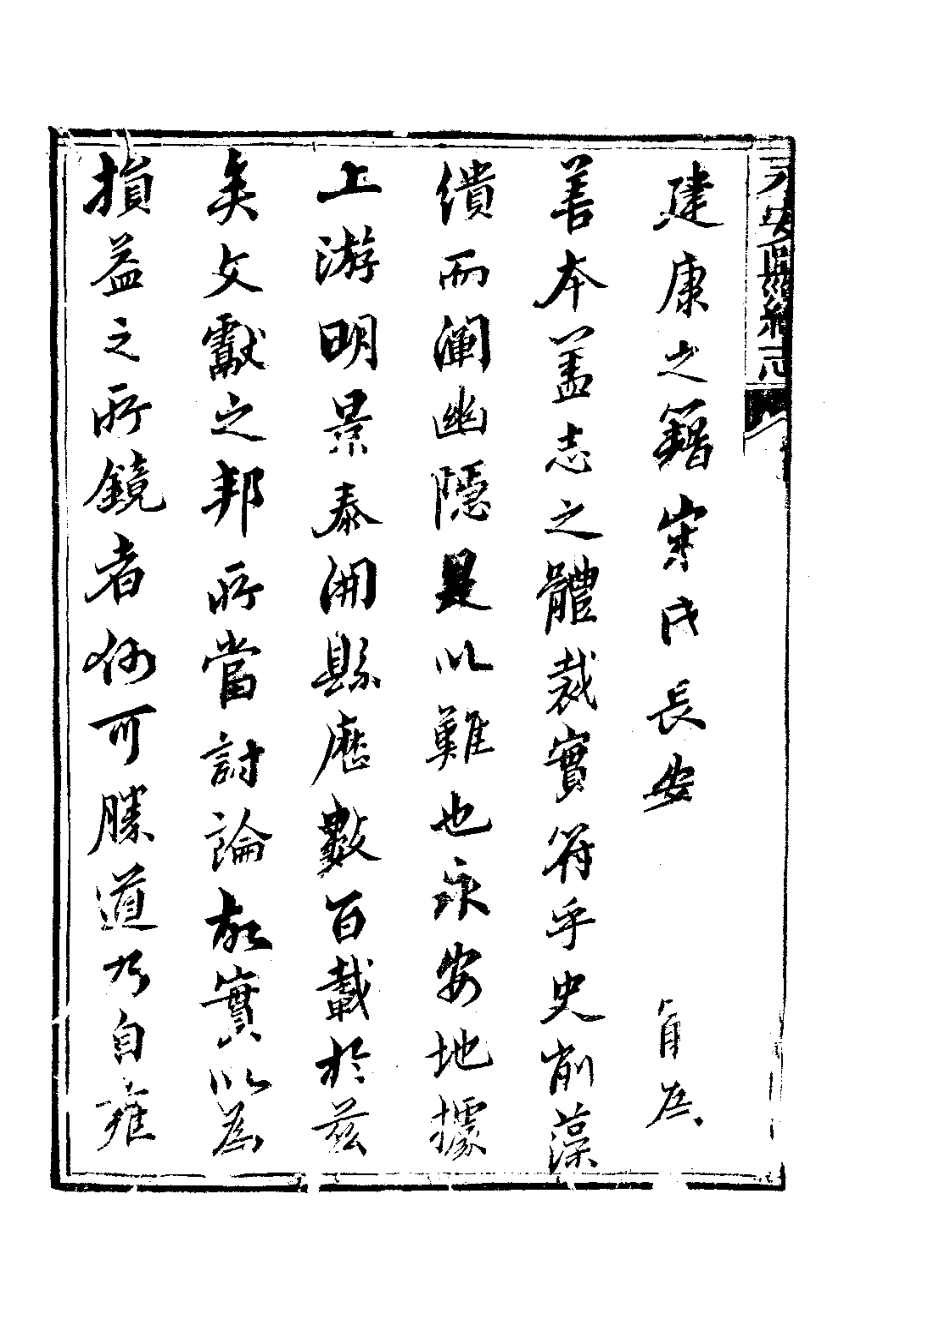 永安縣續志
建康之籍宋氏長安
善本盖志之體裁實符乎史削藻
繢而闡幽隱是以難也永安地據
上游明景泰開縣歷數百載於茲
矣文獻之邦所當討論故實以為
損益之所鏡者何可勝道乃自雍